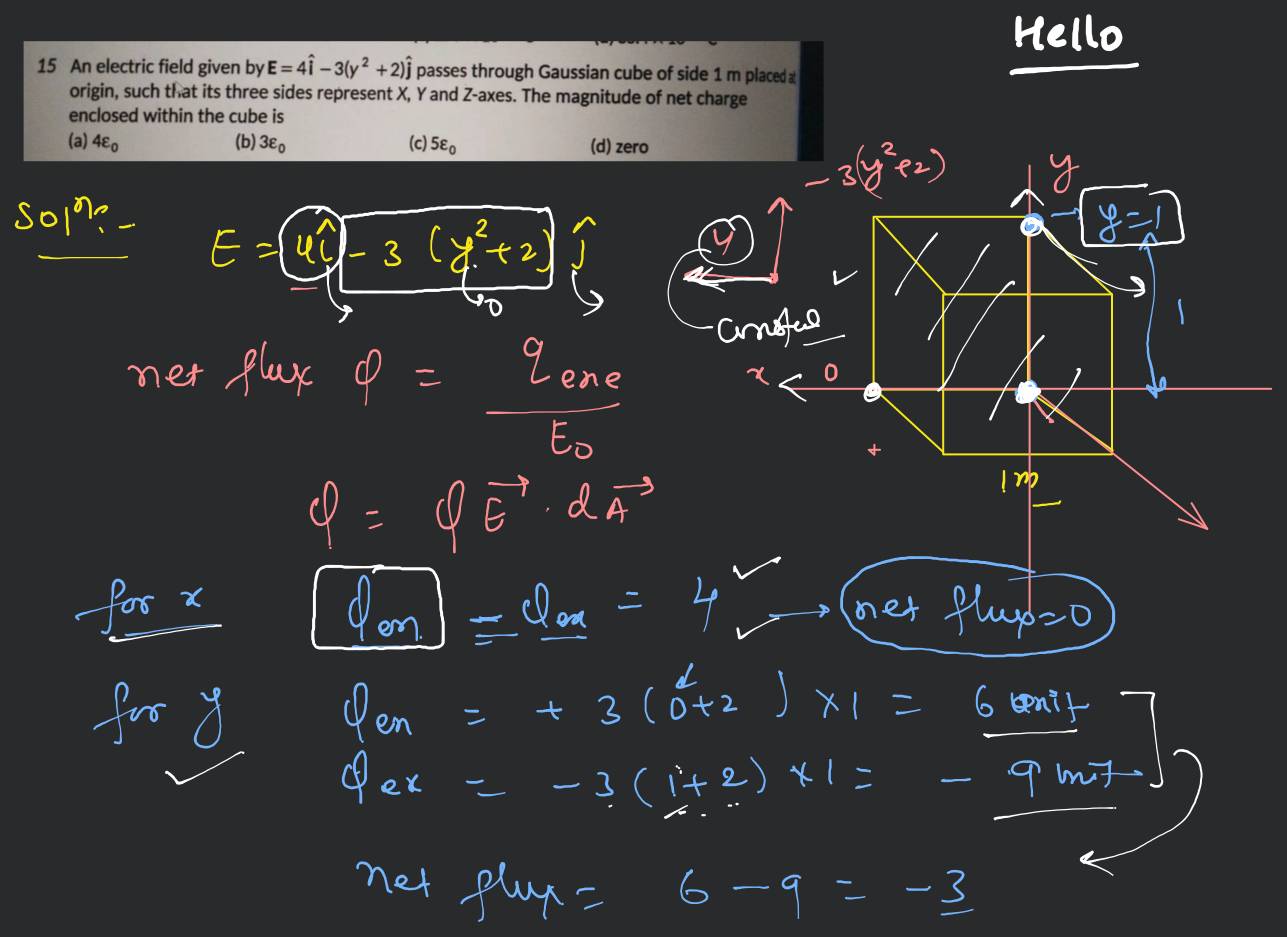 Hello
15 An electric field given by E = 4î – 3(y² + 2)ĵ passes through Gaussian cube of side 1 m placed at
origin, such that its three sides represent X, Y and Z-axes. The magnitude of net charge
enclosed within the cube is
(a) 4ε₀ (b) 3ε₀ (c) 5ε₀ (d) zero
Solⁿ:-
E = 4î - 3 (y² + 2) ĵ
0
- 3(y²+2)
4
y
y=1
1
x
0
+
1m
net flux φ = q ene / E0
φ = ∮ E⃗ . dA⃗
for x φen = φex = 4 → net flux=0
for y φen = + 3 ( 0+2 ) x1 = 6 unit
φex = - 3 ( 1+2 ) x1 = - 9 unit
net flux = 6 - 9 = -3